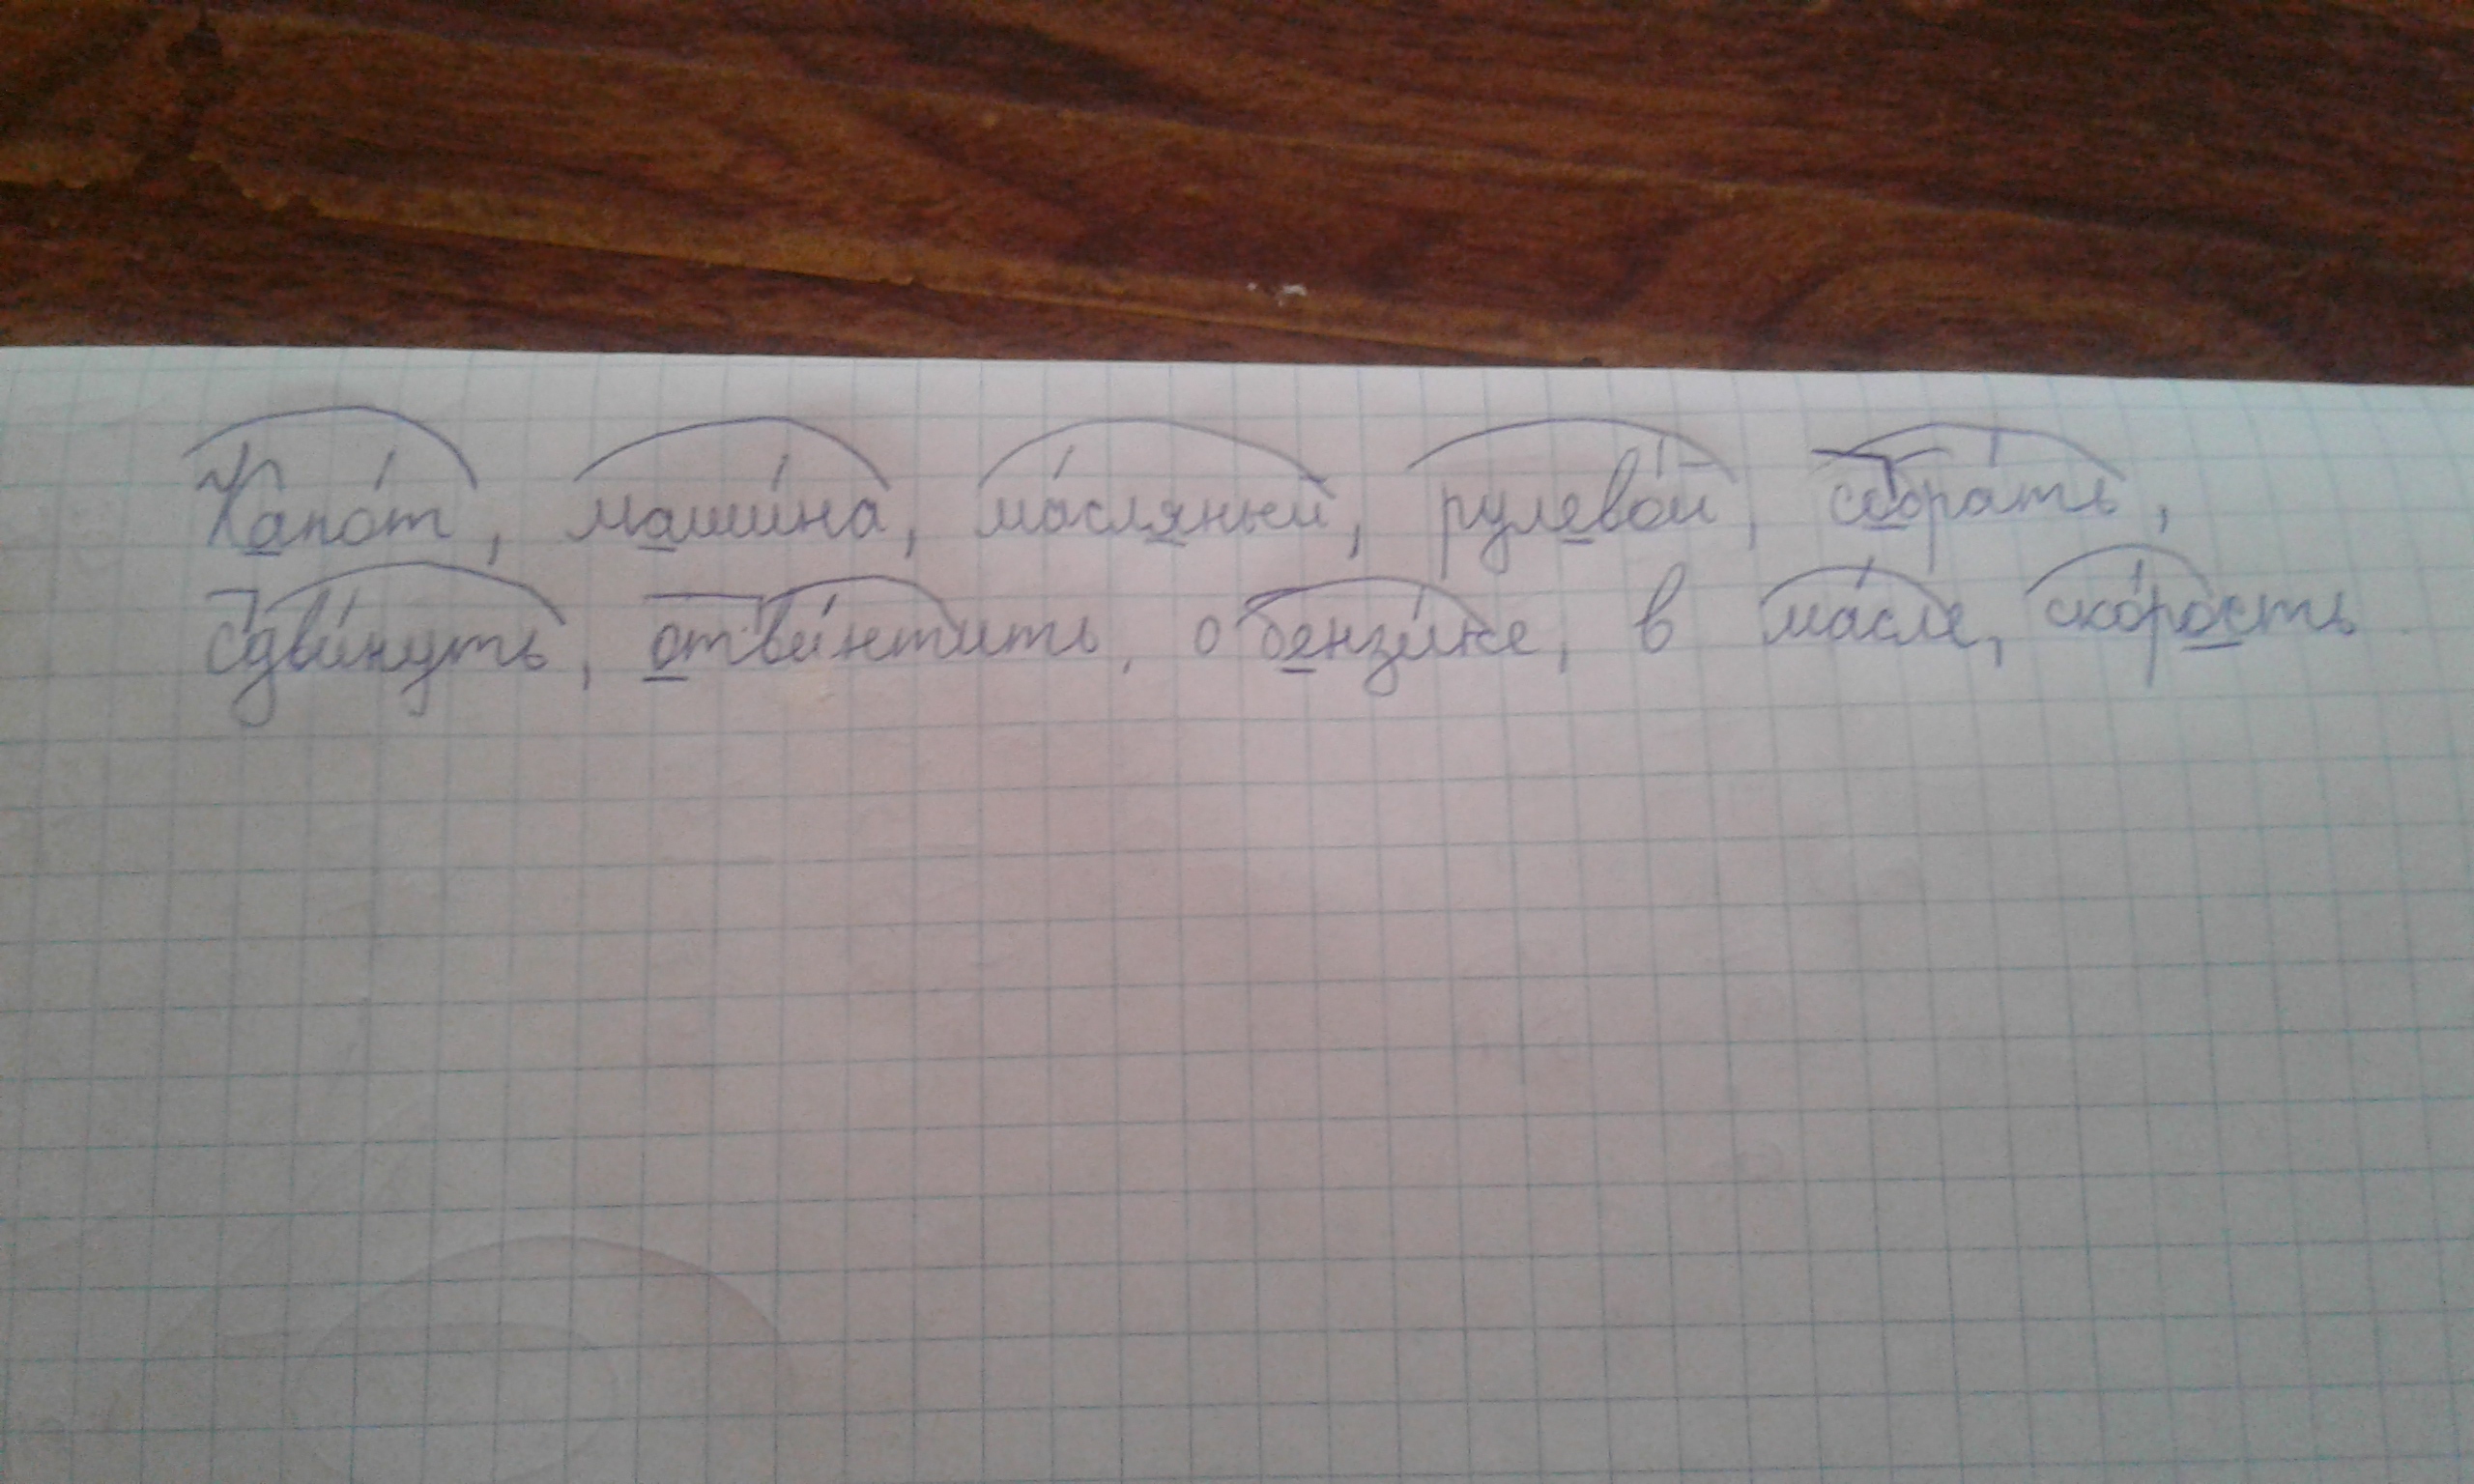 Капо́т, маши́на, ма́сляный, рулево́й, собра́ть,
сдви́нуть, отви́нтить, о бензи́не, в ма́сле, ско́рость